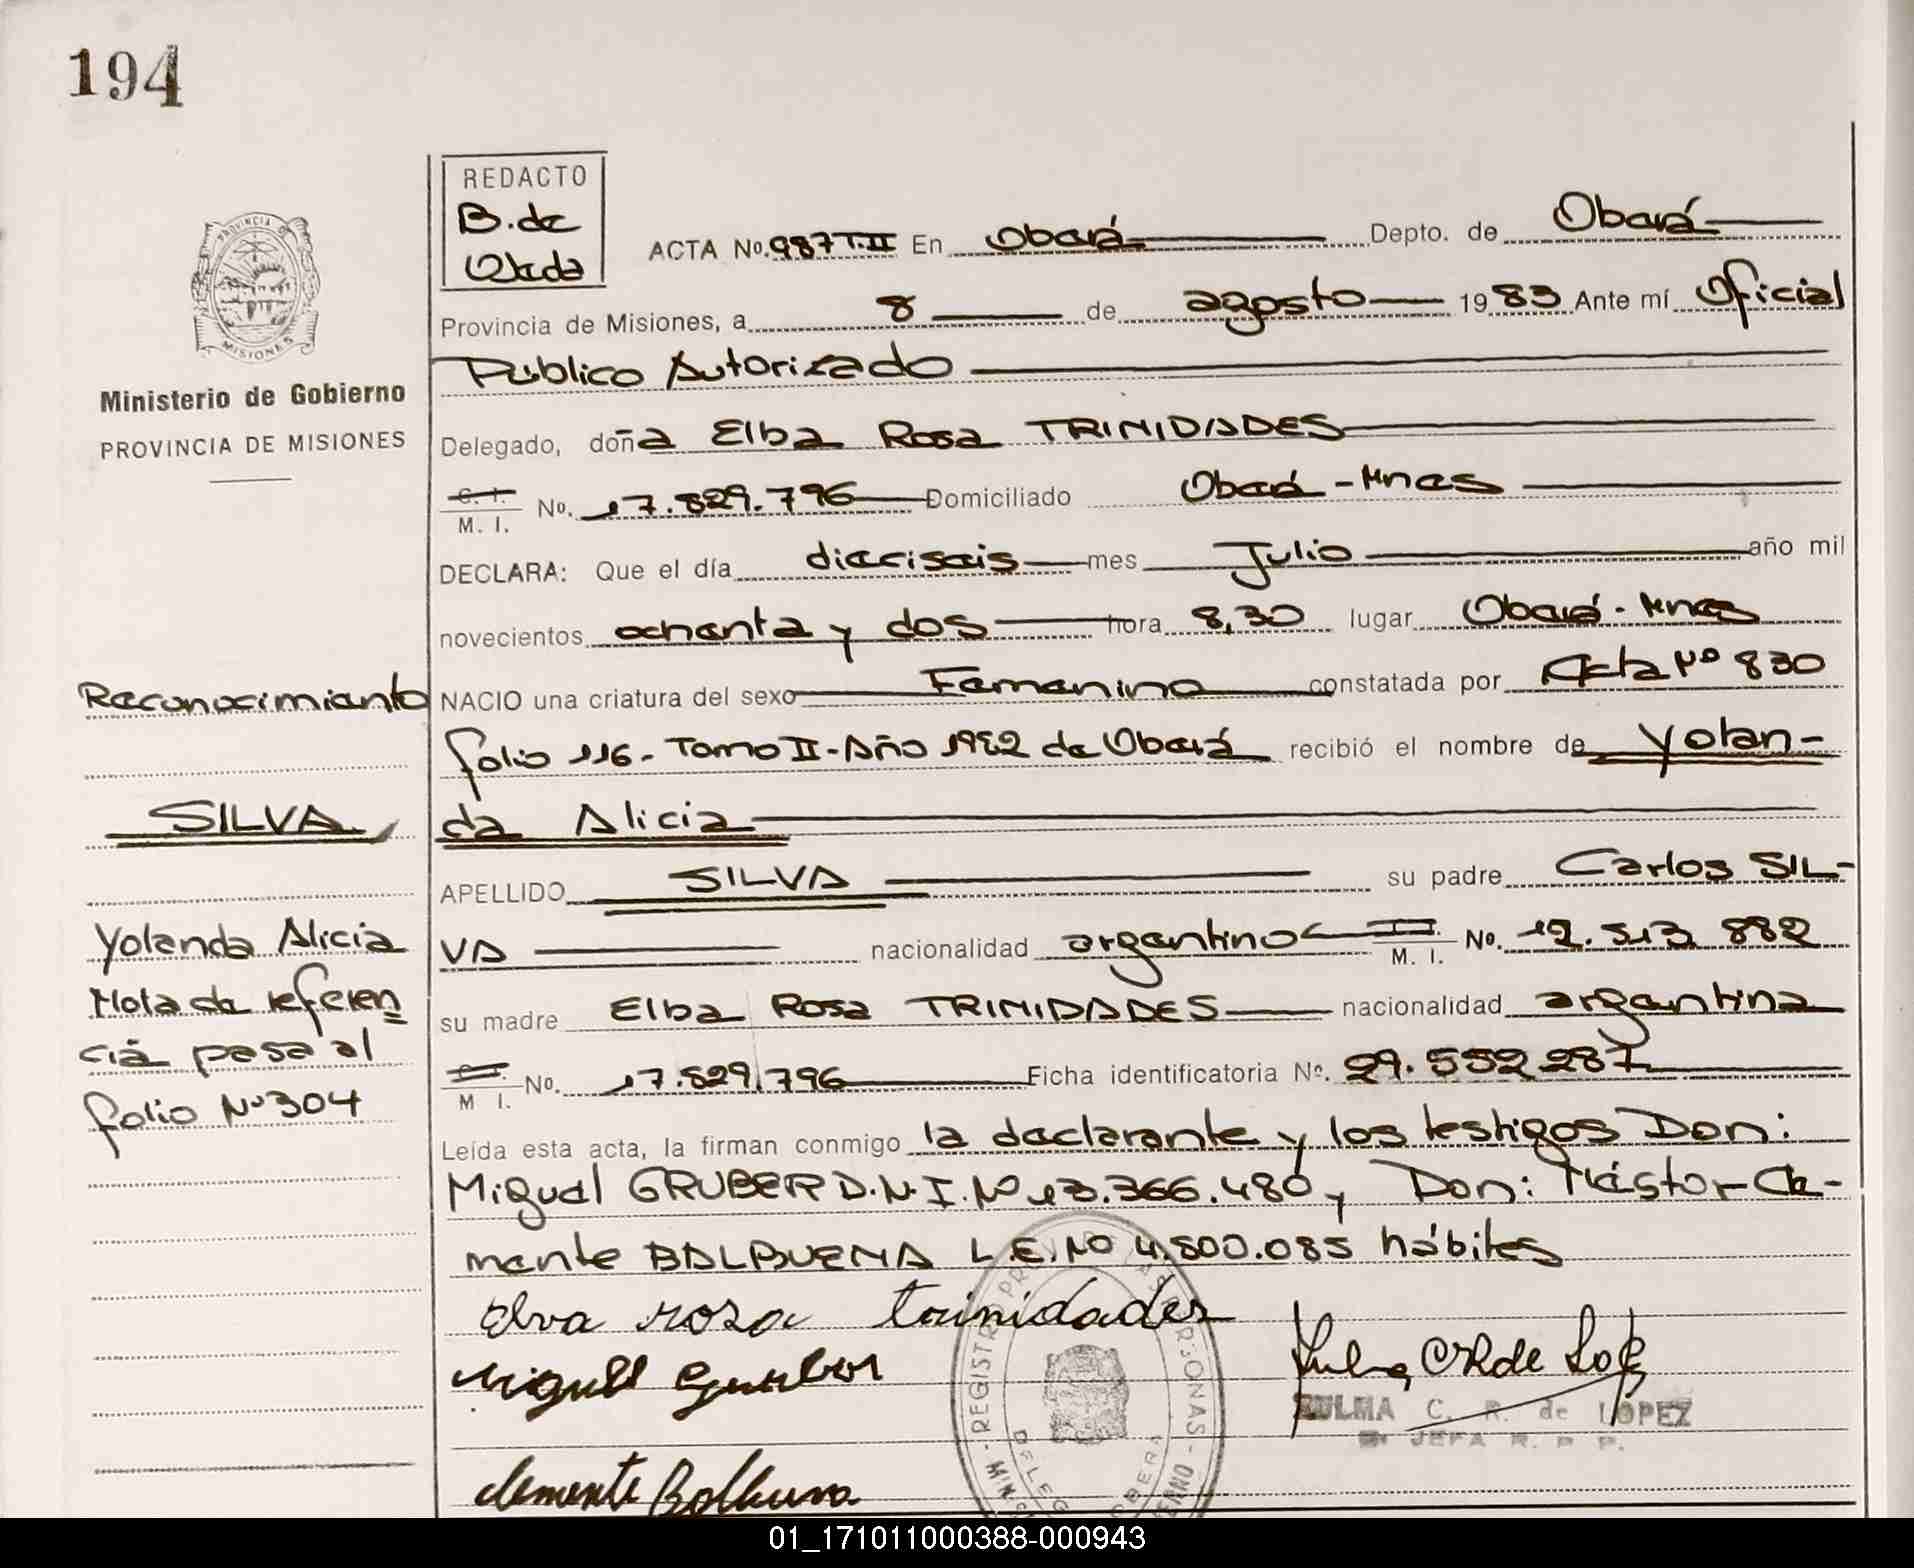 194
REDACTO
B. de
Ojeda
ACTA No. 987 T.II En Oberá Depto. de Oberá
Provincia de Misiones, a 8 de agosto 1983 Ante mí Oficial
Público Autorizado
Delegado, doña Elba Rosa TRINIDADES
C. I.
M. I. No. 17.829.796 Domiciliado Oberá - Mnes
DECLARA: Que el día dieciseis mes Julio año mil
novecientos ochenta y dos hora 8,30 lugar Oberá - Mnes
NACIO una criatura del sexo Femenino constatada por Acta Nº 830
folio 116 - Tomo II - Año 1982 de Oberá recibió el nombre de Yolan-
da Alicia
APELLIDO SILVA su padre Carlos SIL-
VA nacionalidad argentino M. I. No. 12.513 882
su madre Elba Rosa TRINIDADES nacionalidad argentina
M I. No. 17.829.796 Ficha identificatoria Nº. 29.552 287
Leída esta acta, la firman conmigo la declarante y los testigos Don:
Miguel GRUBER D.N.I. Nº 13.366.480 y Don: Néstor Cle-
mente BALBUENA L.E. Nº 4.800.085 hábiles
Elva rosa trinidades
Miguel Gruber
Clemente Balbuena
ZULMA C. R. de LOPEZ
JEFA R. P. P.
REGISTRO PROV. DE LAS PERSONAS
PROVINCIA DE
MISIONES
Ministerio de Gobierno
PROVINCIA DE MISIONES
Reconocimiento
SILVA
Yolanda Alicia
Nota de referen
cia pasa al
folio Nº 304
01_171011000388-000943